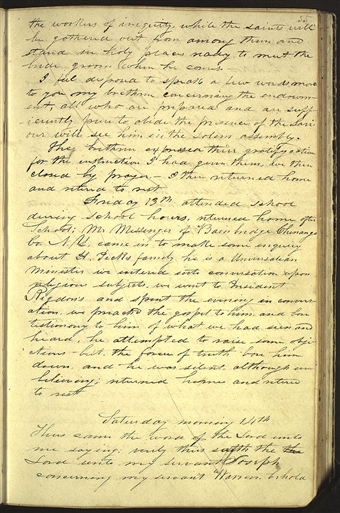 the workers of iniquity, while the saints will
be gathered out from among them and
stand in holy places ready to meet the
bride groom when he comes.
I feel disposed to speak a few words more
to you my brethren concerning the endowm
ent, all who are prepared and are suff
iciently pure to abide the presence of the Savi
our will see him in the solem assembly.
They brethren expressed their gratifycation
for the instruction I had given them, we then
closed by prayer — I then returned home
and retired to rest
Friday 13th attended school
during school hours, returned home after
School; Mr Messenger of Bainbridge Chenango
Co N.Y. came in to make some enquiry
about H. Peck's family he is a Universalian
Minister we entered into conversation upon
religious subjects, we went to President
Rigdon's and spent the evening in conver
sation, we preached the gospel to him, and bore
testimony to him of what we had seen and
heard, he attempted to raise some obje
ctions but the force of truth bore him
down, and he was silent, although un
believing; returned home and retired
to rest
Saturday morning 14th
Thus came the word of the Lord unto
me saying: verily thus saith the
Lord unto my servant Joseph
concerning my servant Warren behold